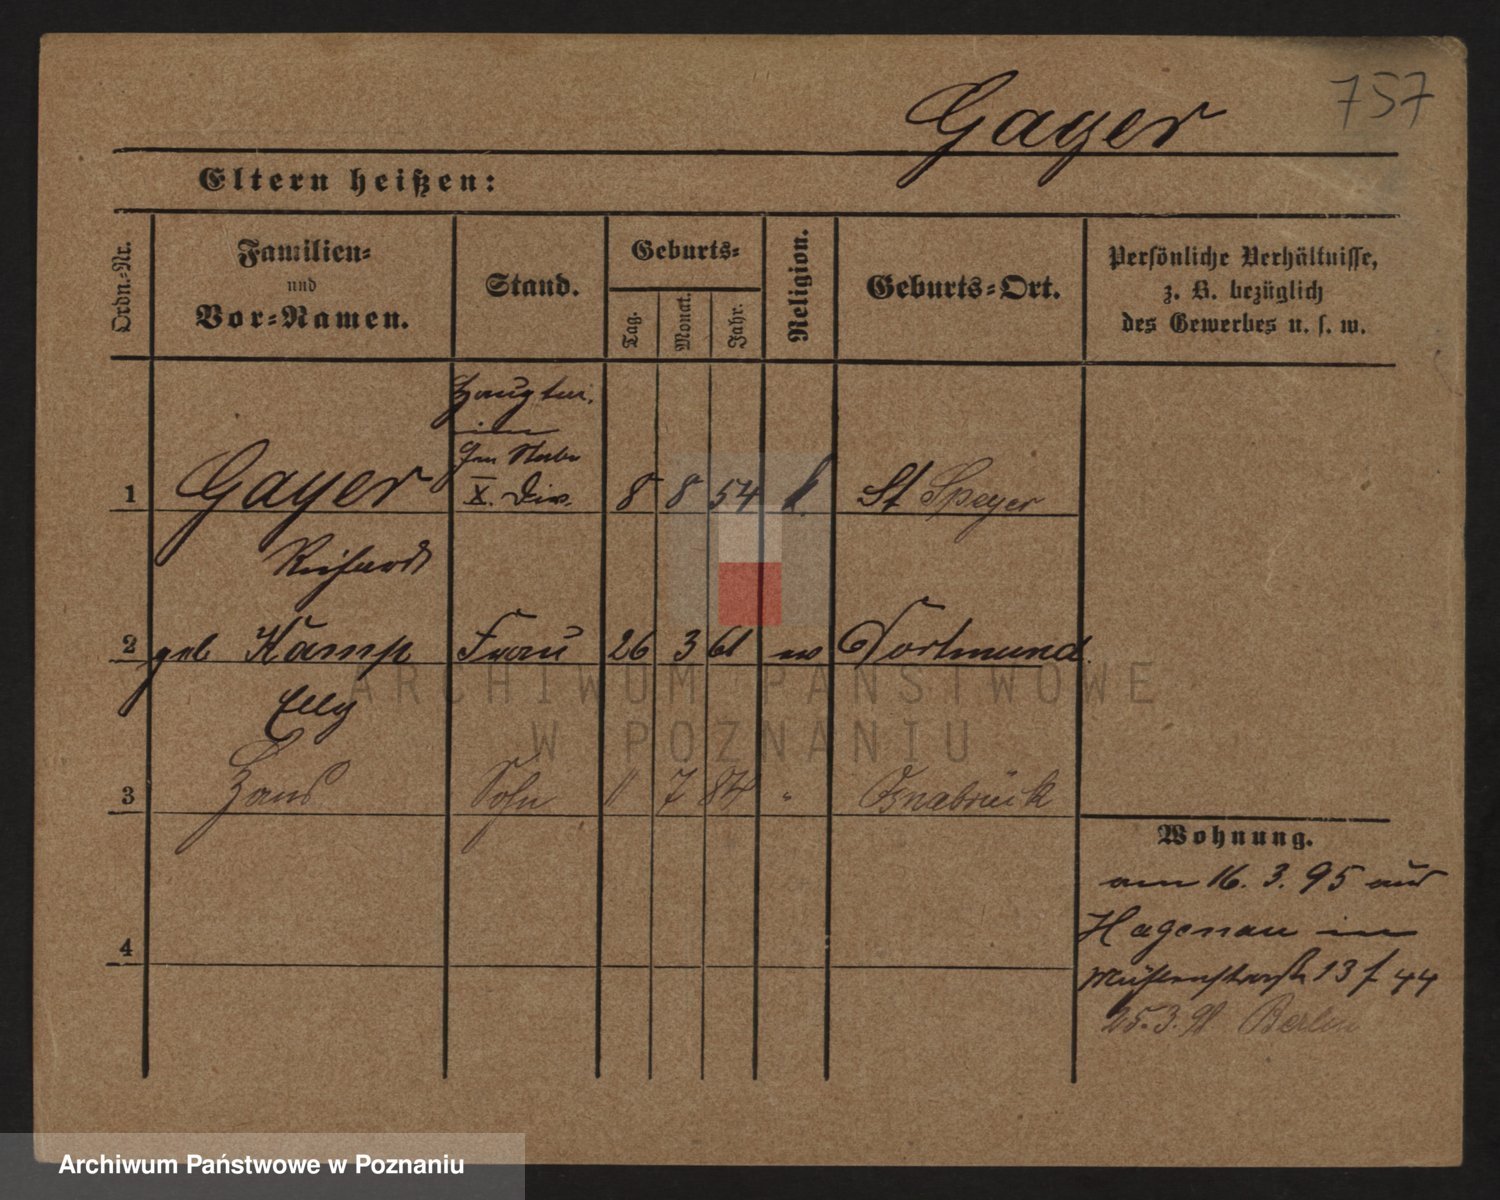 757
Gayer
Eltern heißen:
Ordn.-Nr.
Familien-
und
Vor-Namen.
Stand.
Geburts-
Tag.
Monat.
Jahr.
Religion.
Geburts-Ort.
Persönliche Verhältnisse,
z. B. bezüglich
des Gewerbes u. s. w.
Hauptm.
im
Gen Stabe
1 Gayer X. Div. 8 8 54 k. St Speyer
Richard
2 geb Kamp Frau 26 3 61 ev Dortmund
Elly
3 Hans Sohn 11 7 84 " Osnabrück
4
Wohnung.
am 16. 3. 95 aus
Hagenau in
Mühlenstraße 13 f 44
25.3.98 Berlin
ARCHIWUM PAŃSTWOWE
W POZNANIU
Archiwum Państwowe w Poznaniu